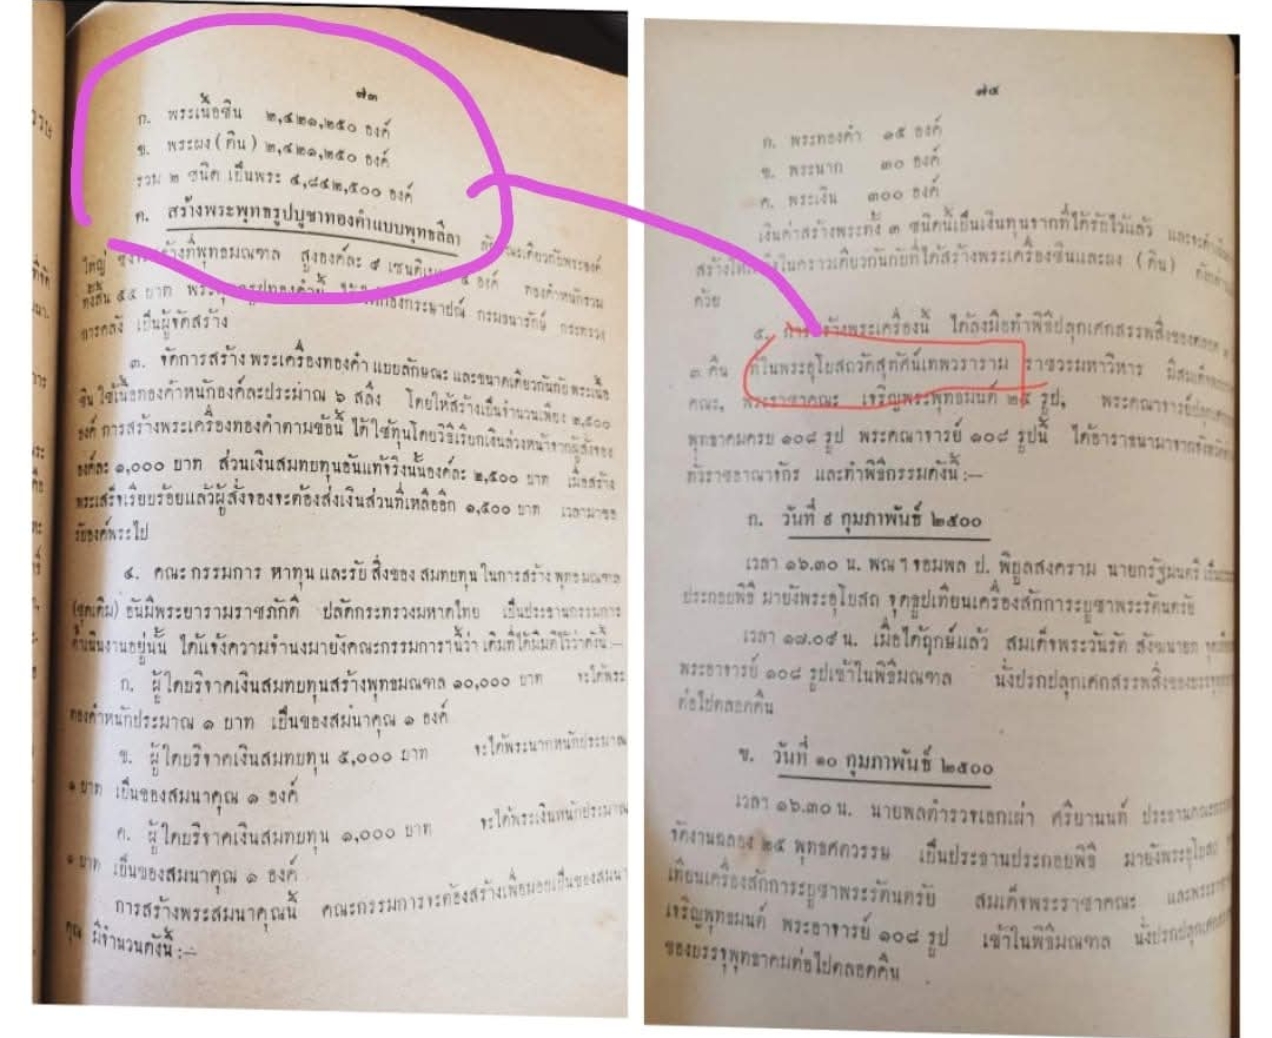 ๗๓
ก. พระเนื้อชิน ๒,๔๒๑,๒๕๐ องค์
ข. พระผง(ดิน) ๒,๔๒๑,๒๕๐ องค์
รวม ๒ ชนิด เป็นพระ ๔,๘๔๒,๕๐๐ องค์
ค. สร้างพระพุทธรูปบูชาทองคำแบบพุทธลีลา
ใหญ่ ที่พุทธมณฑล สูงองค์ละ ๔ องค์ ทองคำหนักรวม
ทั้งสิ้น ๕๕ บาท กรมธนารักษ์ กระทรวง
การคลัง เป็นผู้จัดสร้าง
๓. จัดการสร้างพระเครื่องทองคำ แบบลักษณะ และขนาดเดียวกันกับพระเนื้อ
ชิน ใช้เนื้อทองคำหนักองค์ละประมาณ ๖ สลึง โดยให้สร้างเป็นจำนวนเพียง ๒,๕๐๐
องค์ การสร้างพระเครื่องทองคำตามข้อนี้ ได้ใช้ทุนโดยวิธีเรียกเงินล่วงหน้าจากผู้สั่งจอง
องค์ละ ๑,๐๐๐ บาท ส่วนเงินสมทบทุนอันแท้จริงนั้นองค์ละ ๒,๕๐๐ บาท เมื่อสร้าง
พระเสร็จเรียบร้อยแล้วผู้สั่งจองจะต้องส่งเงินส่วนที่เหลืออีก ๑,๕๐๐ บาท เวลามาขอ
รับองค์พระไป
๔. คณะกรรมการ หาทุน และรับ สิ่งของ สมทบทุน ในการสร้าง พุทธมณฑล
(ชุดเดิม) อันมีพระยารามราชภักดี ปลัดกระทรวงมหาดไทย เป็นประธานกรรมการ
ดำเนินงานอยู่นั้น ได้แจ้งความจำนงมายังคณะกรรมการนี้ว่า เดิมที่ได้มีมติไว้ว่าดังนี้:—
ก. ผู้ใดบริจาคเงินสมทบทุนสร้างพุทธมณฑล ๑๐,๐๐๐ บาท จะได้พระ
ทองคำหนักประมาณ ๑ บาท เป็นของสมนาคุณ ๑ องค์
ข. ผู้ใดบริจาคเงินสมทบทุน ๕,๐๐๐ บาท จะได้พระนากหนักประมาณ
๑ บาท เป็นของสมนาคุณ ๑ องค์
ค. ผู้ใดบริจาคเงินสมทบทุน ๑,๐๐๐ บาท จะได้พระเงินหนักประมาณ
๑ บาท เป็นของสมนาคุณ ๑ องค์
การสร้างพระสมนาคุณนี้ คณะกรรมการจะต้องสร้างเพื่อมอบเป็นของสมนา
คุณ มีจำนวนดังนี้ :—
๗๔
ก. พระทองคำ ๑๕ องค์
ข. พระนาก ๓๐ องค์
ค. พระเงิน ๓๐๐ องค์
เงินค่าสร้างพระทั้ง ๓ ชนิดนี้เป็นเงินทุนจากที่ได้รับไว้แล้ว
ในคราวเดียวกันกับที่ได้สร้างพระเครื่องชินและผง (ดิน)
ด้วย
๕. พระเครื่องนี้ ได้ลงมือทำพิธีปลุกเศกสรรพสิ่งของตลอด ๓
๓ คืน ที่ในพระอุโบสถวัดสุทัศน์เทพวราราม ราชวรมหาวิหาร
คณะ, พระราชาคณะ เจริญพระพุทธมนต์ ๒๕ รูป, พระคณาจารย์
พุทธาคมครบ ๑๐๘ รูป พระคณาจารย์ ๑๐๘ รูปนี้ ได้อาราธนามาจากจังหวัด
ทั่วราชอาณาจักร และทำพิธีกรรมดังนี้ :—
ก. วันที่ ๙ กุมภาพันธ์ ๒๕๐๐
เวลา ๑๖.๓๐ น. พณฯ จอมพล ป. พิบูลสงคราม นายกรัฐมนตรี เป็น
ประกอบพิธี มายังพระอุโบสถ จุดธูปเทียนเครื่องสักการะบูชาพระรัตนตรัย
เวลา ๑๗.๐๙ น. เมื่อได้ฤกษ์แล้ว สมเด็จพระวันรัต สังฆนายก
พระอาจารย์ ๑๐๘ รูปเข้าในพิธีมณฑล นั่งปรกปลุกเศกสรรพสิ่งของ
ต่อไปตลอดคืน
ข. วันที่ ๑๐ กุมภาพันธ์ ๒๕๐๐
เวลา ๑๖.๓๐ น. นายพลตำรวจเอกเผ่า ศรียานนท์
จัดงานฉลอง ๒๕ พุทธศตวรรษ เป็นประธานประกอบพิธี มายังพระอุโบสถ
เทียนเครื่องสักการะบูชาพระรัตนตรัย สมเด็จพระราชาคณะ
เจริญพุทธมนต์ พระอาจารย์ ๑๐๘ รูป เข้าในพิธีมณฑล นั่งปรกปลุกเศก
ของบรรจุพุทธาคมต่อไปตลอดคืน